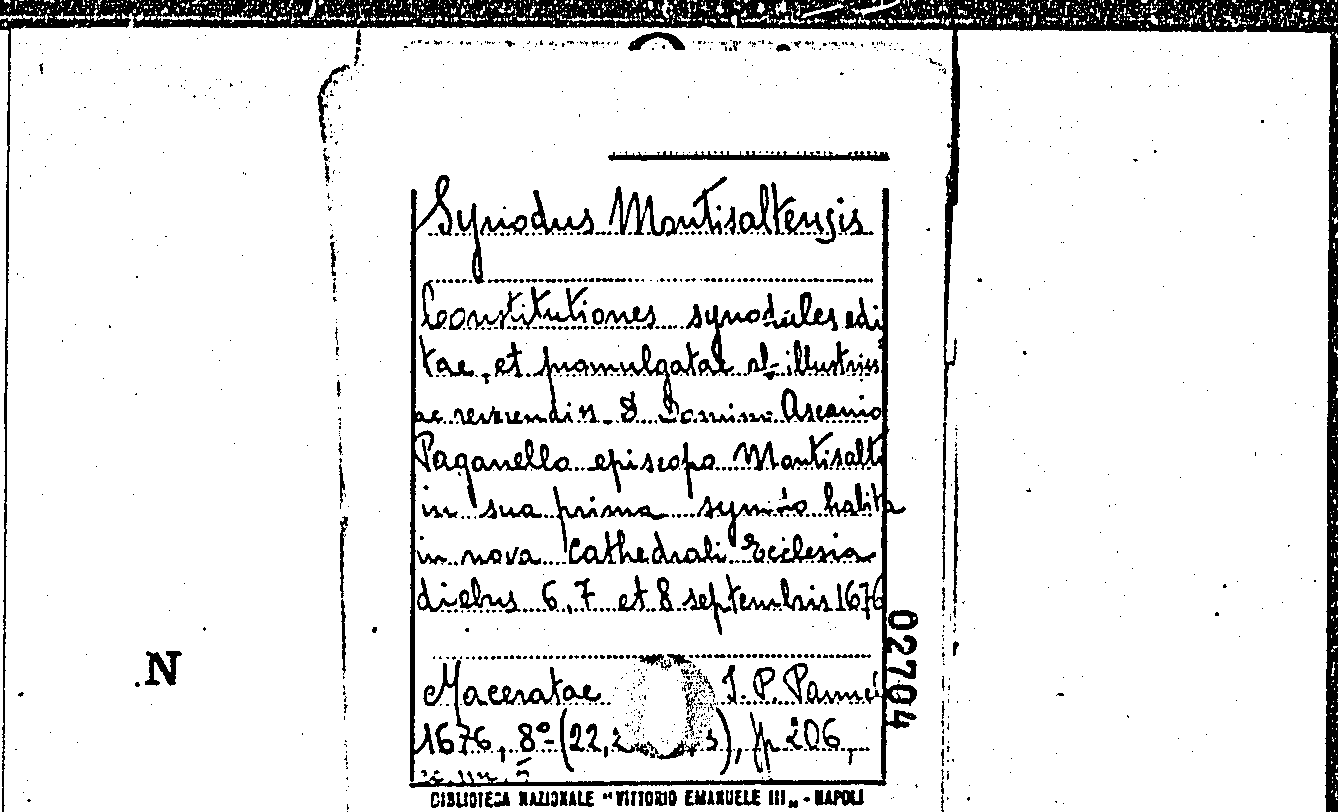 Synodus Montisaltensis
Constitutiones synodales edi
tae, et promulgatae ab illustriss
ac reverendiss. D. Domino Ascanio
Paganello episcopo Montisalti
in sua prima synodo habita
in nova Cathedrali Ecclesia
diebus 6, 7 et 8 septembris 1676
Maceratae J. P. Pannei
1676, 8º (22, ), p 206,
BIBLIOTECA NAZIONALE "VITTORIO EMANUELE III" - NAPOLI
02704
N